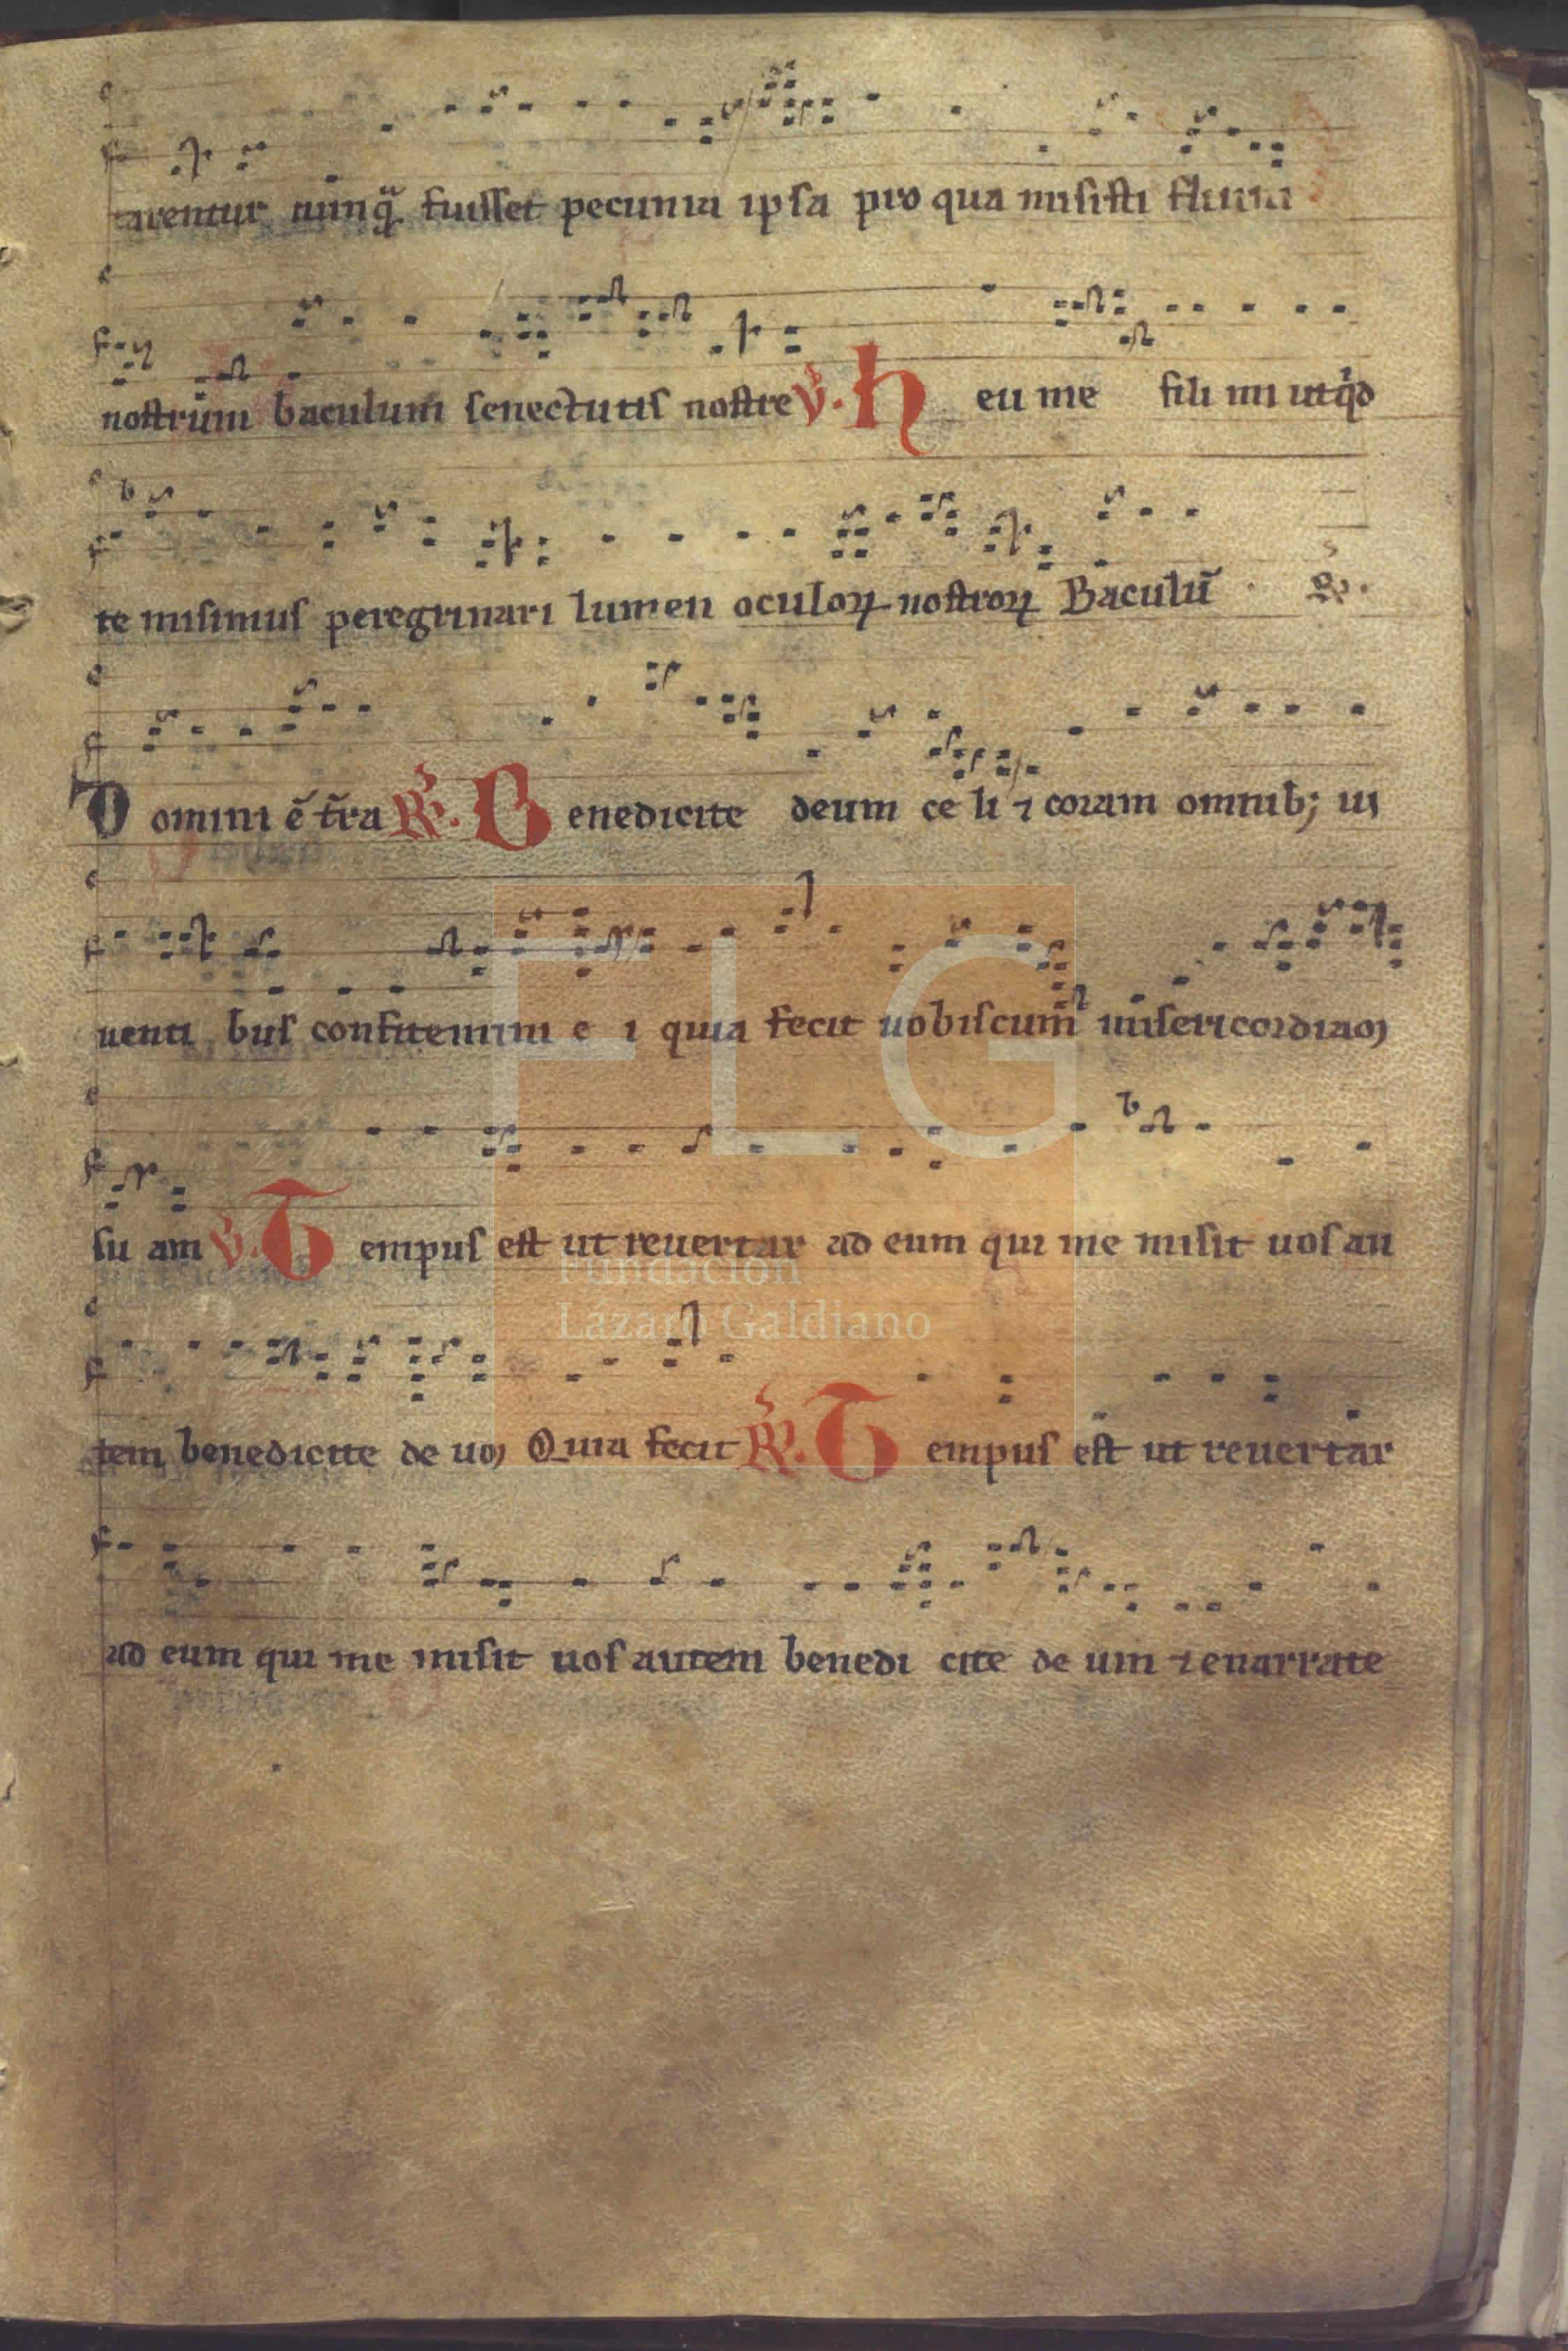 tarentur nunq̃ fuisset pecunia ipsa pro qua misisti filium
nostrum baculum senectutis nostre ℣. Heu me fili mi utqͥd
te misimus peregrinari lumen oculoꝝ nostroꝝ Baculũ ℟.
Domini ẽ t̃ra ℟. Benedicite deum celi ⁊ coram omnibꝫ ui
uentibus confitemini ei quia fecit uobiscum misericordiam
suam ℣. Tempus est ut reuertar ad eum qui me misit uos au
tem benedicite deum Quia fecit ℟. Tempus est ut reuertar
ad eum qui me misit uos autem benedicite deum ⁊ enarrate
FLG
Fundación
Lázaro Galdiano